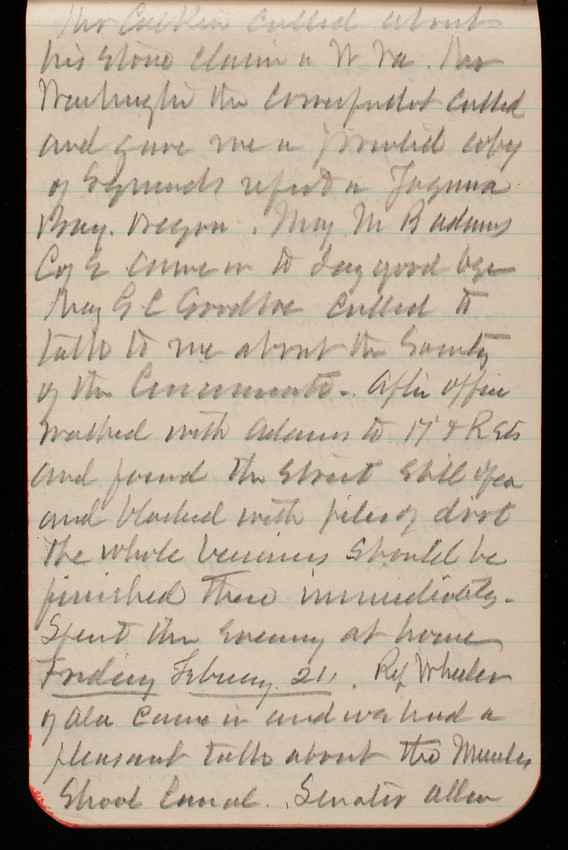 Mr Calkin called about
his stone claim in W Va.
Washington the Correspondent called
and gave me a printed copy
of Symonds report on Yaquina
Bay. Oregon. Maj M B Adams
Cy E came in to say good bye
Maj G L Goodloe called to
talk to me about the Society
of the Cincinnati. After office
walked with Adams to 17 & R Sts
and found the street still open
and blocked with piles of dirt
The whole business should be
finished there immediately.
Spent the evening at home
Friday February 21. Rep Wheeler
of Ala came in and we had a
pleasant talk about the Muscles
Shoal Canal. Senator Allen